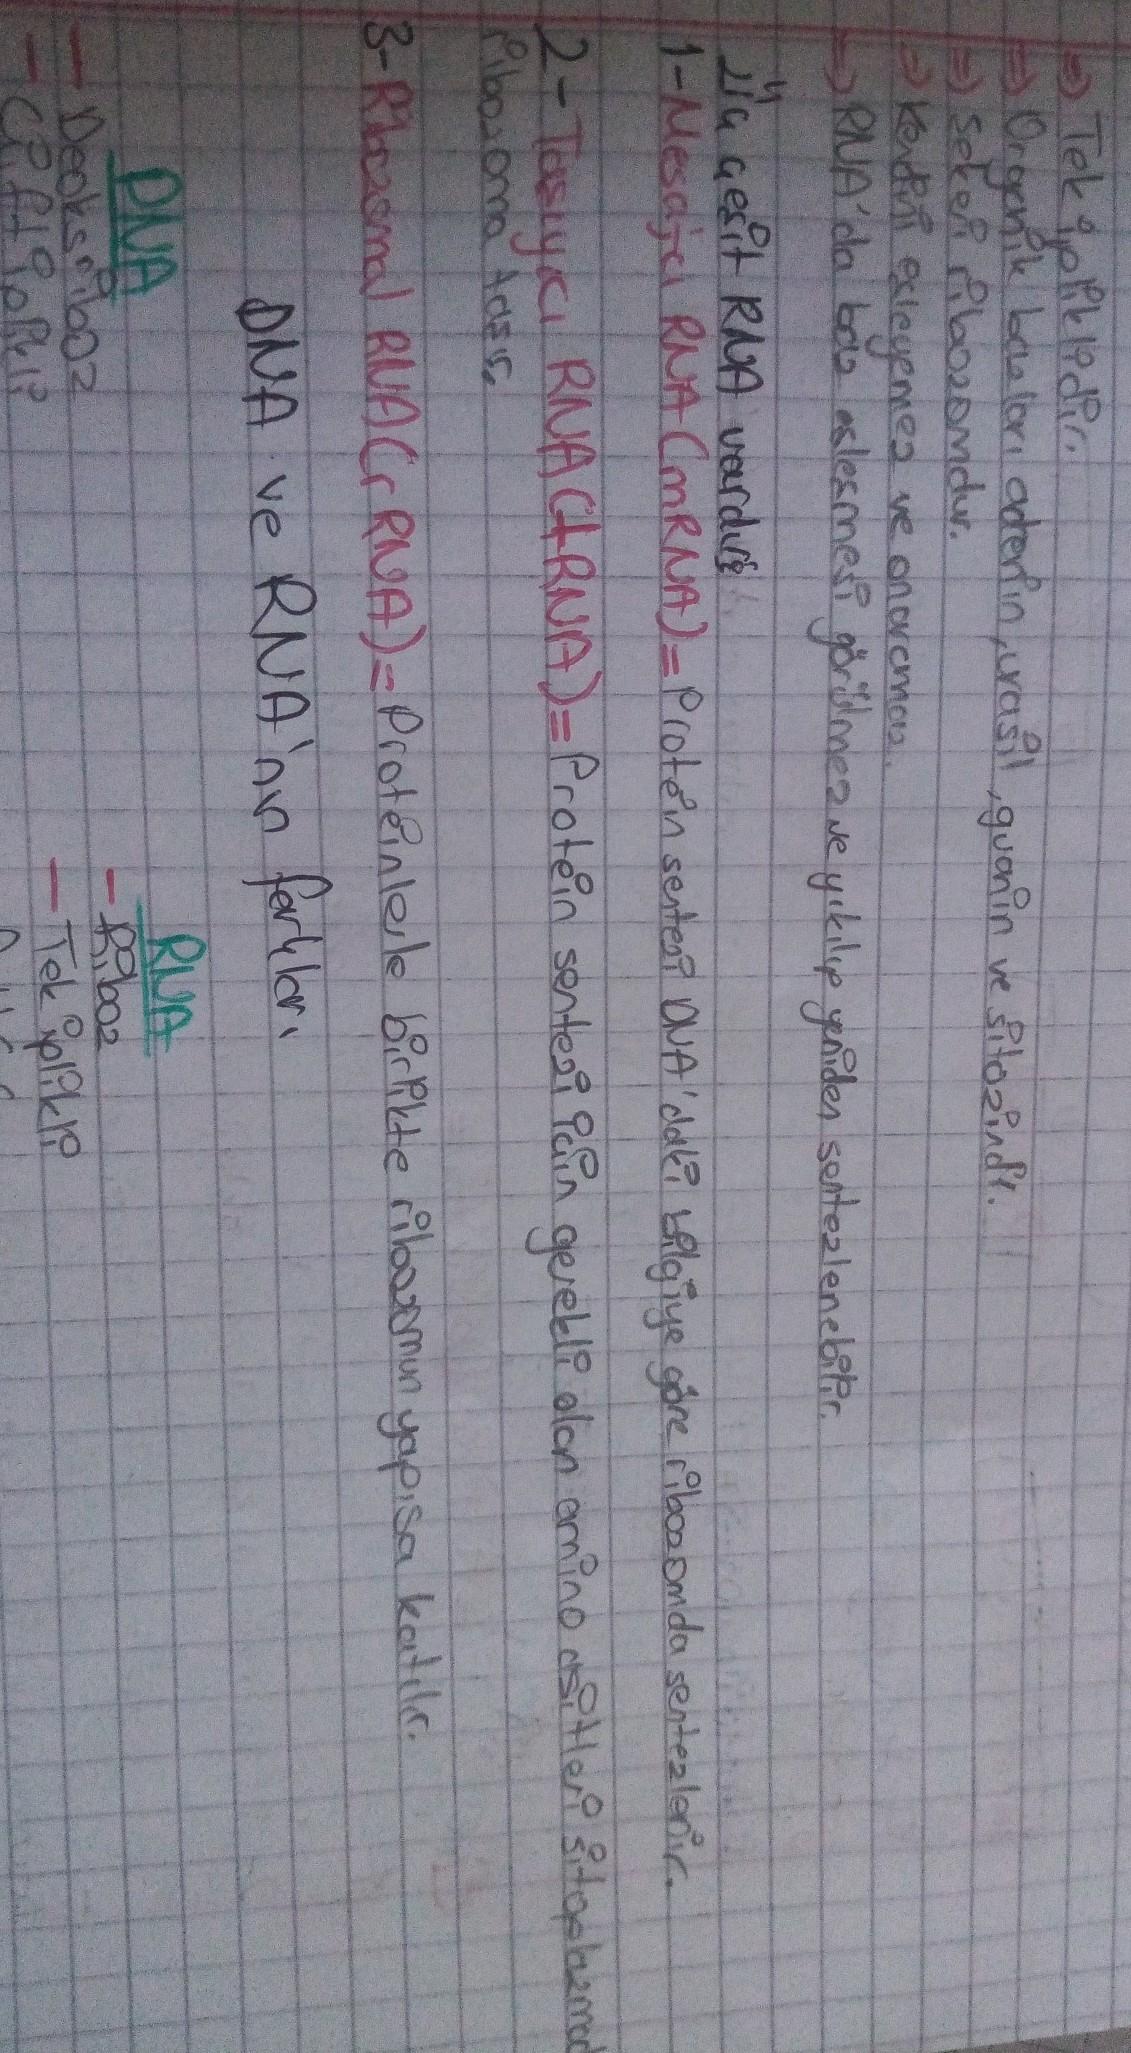 ⇒ Tek ipliklidir.
⇒ Organik bazları adenin, urasil, guanin ve sitozindir.
⇒ Şekeri ribozomdur.
⇒ Kendini eşleyemez ve onarmaz.
⇒ RNA'da baz eşleşmesi görülmez ve yıkılıp yeniden sentezlenebilir.
çeşit RNA vardır:
1-Mesajcı RNA (mRNA)= Protein sentezi DNA'daki bilgiye göre ribozomda sentezlenir.
2-Taşıyıcı RNA (tRNA)= Protein sentezi için gerekli olan amino asitleri sitoplazmad
ribozoma taşır.
3-Ribozomal RNA (rRNA)= Proteinlerle birlikte ribozomun yapısa katılır.
DNA ve RNA'nın farkları
DNA RNA
- Deoksiriboz - Riboz
- Çift iplikli - Tek iplikli